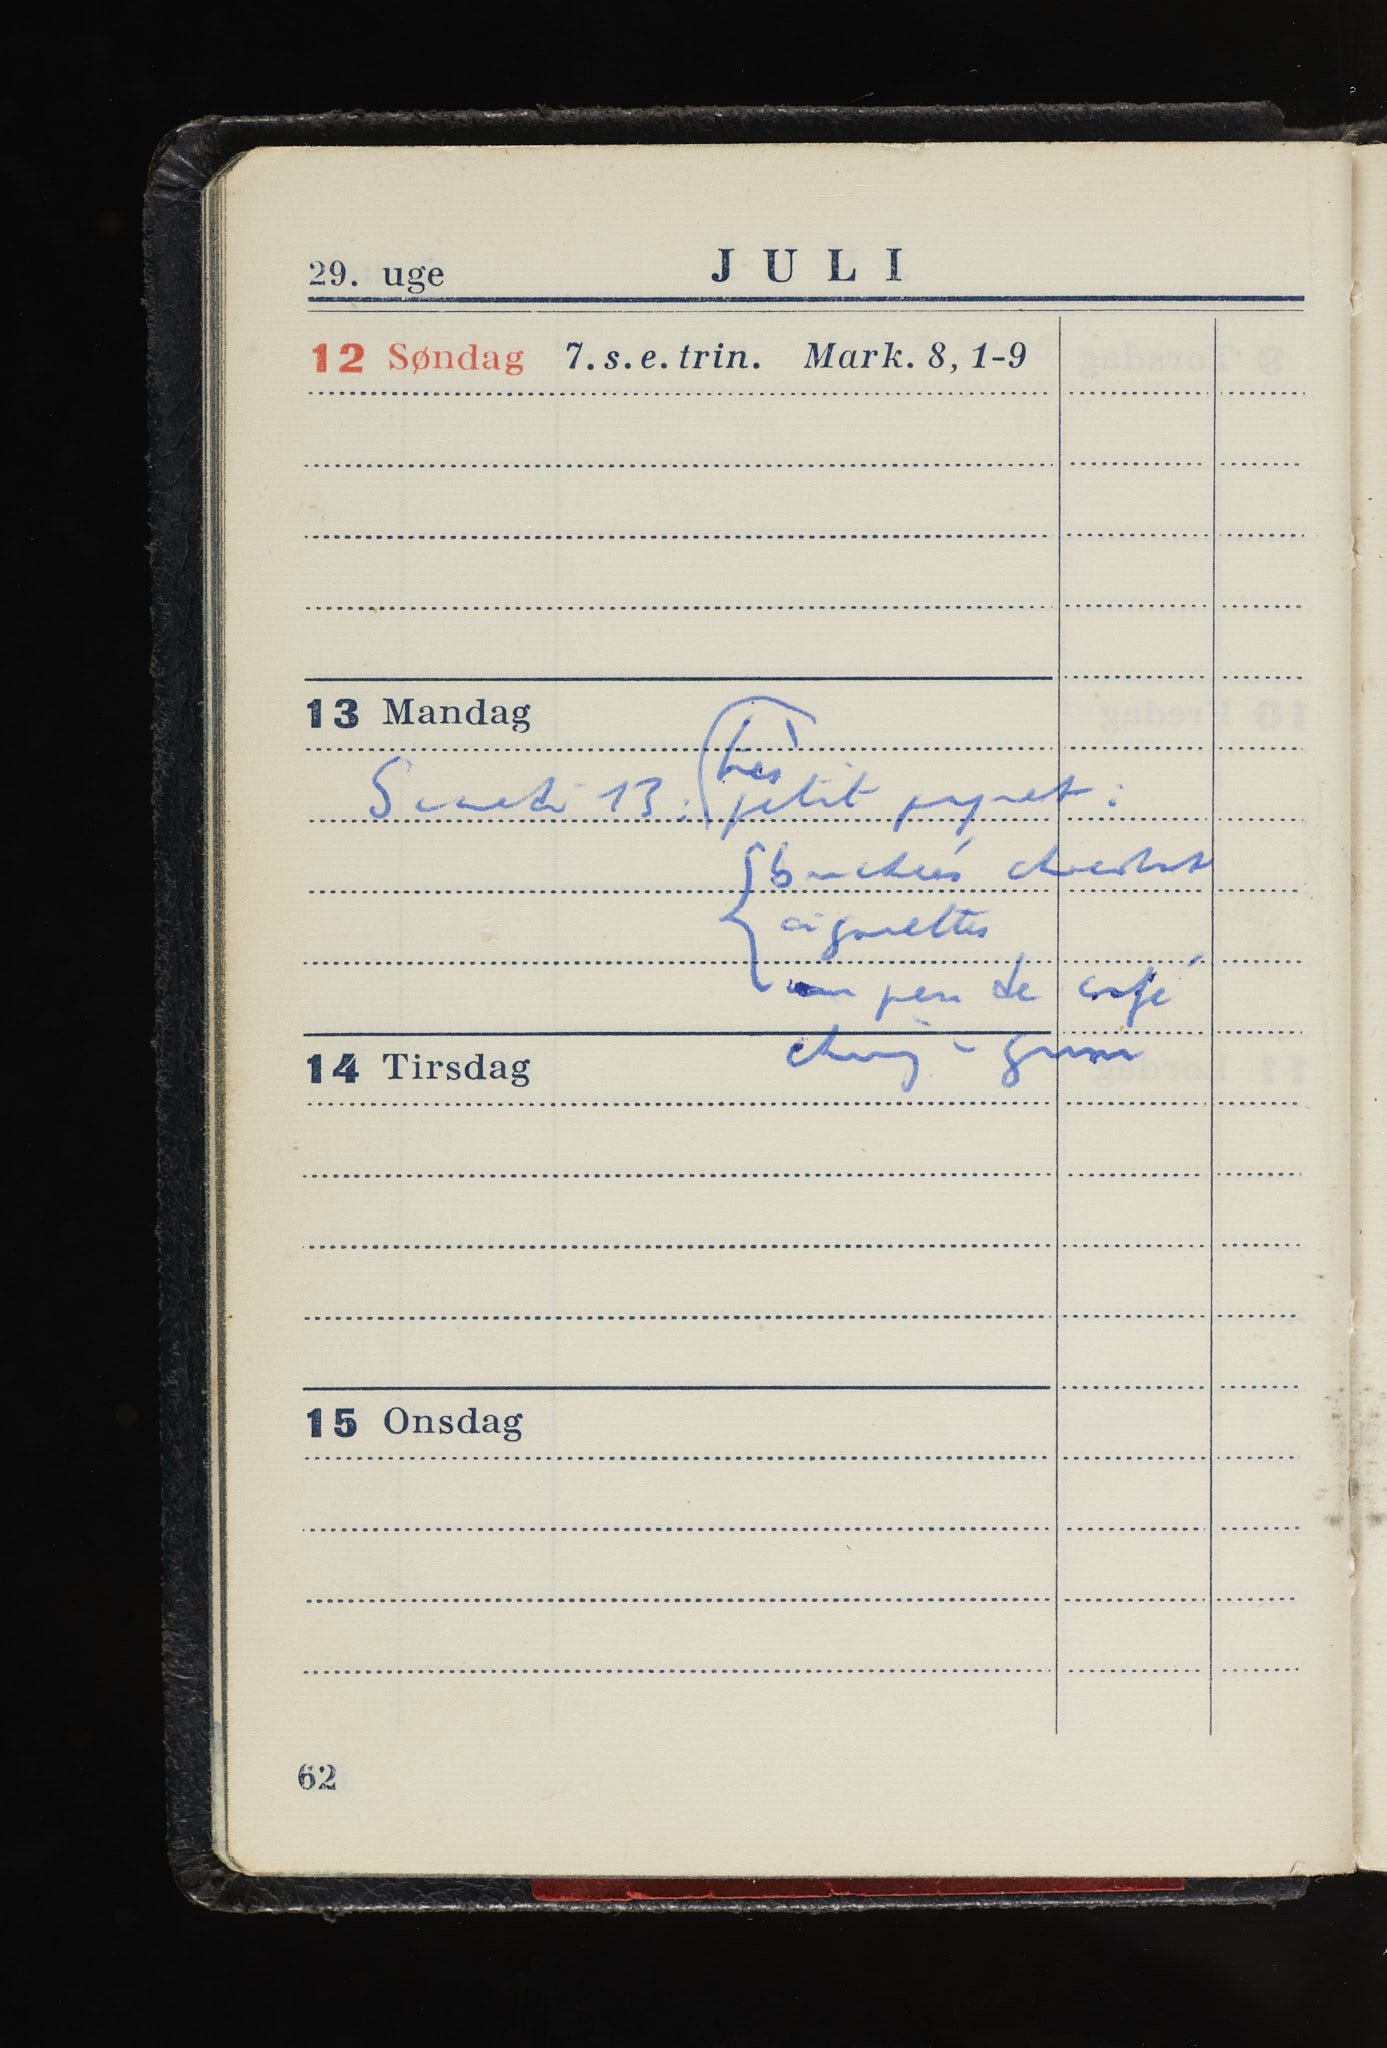 29. uge JULI
12 Søndag 7. s. e. trin. Mark. 8, 1-9
13 Mandag
très
Samedi 13 : petit paquet :
bouchées chocolat
cigarettes
un peu de café
chewing-gum
14 Tirsdag
15 Onsdag
62